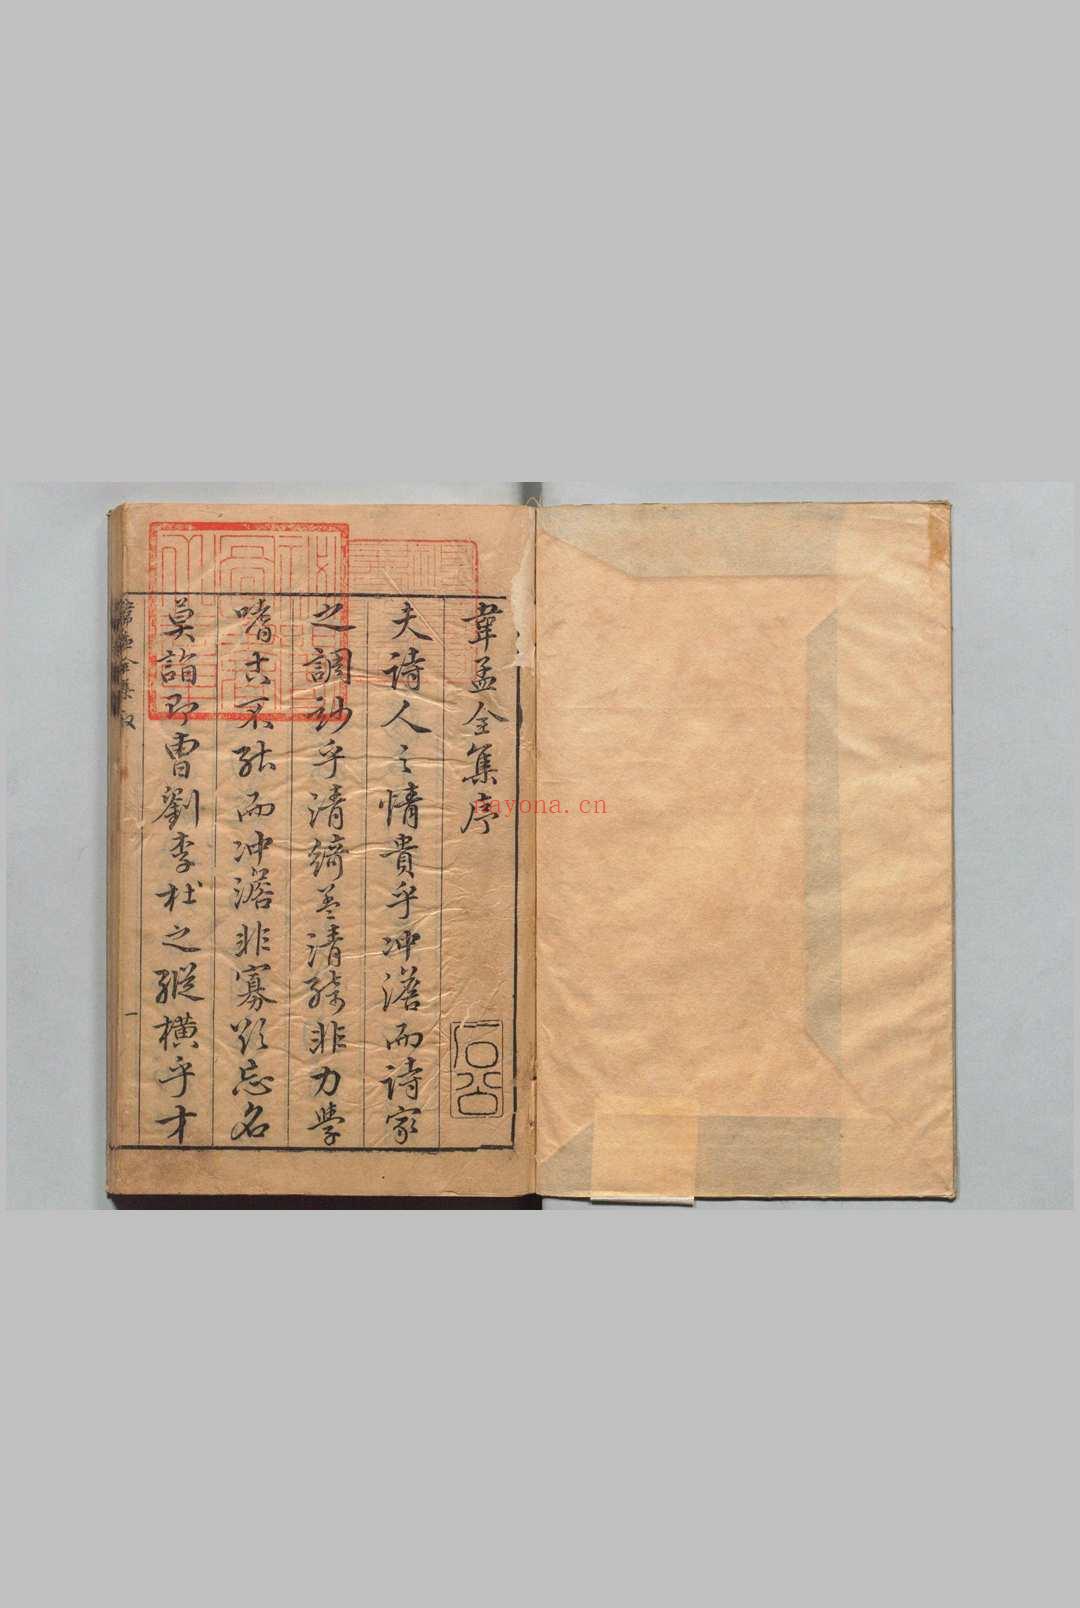 韋孟全集序
石公
夫詩人之情貴乎沖澹而詩家
之調妙乎清綺蓋清綺非力學
嗜古不能而沖澹非寡欲忘名
莫詣即曹劉李杜之縱橫乎才
韋孟全集叙
一
nayona.cn